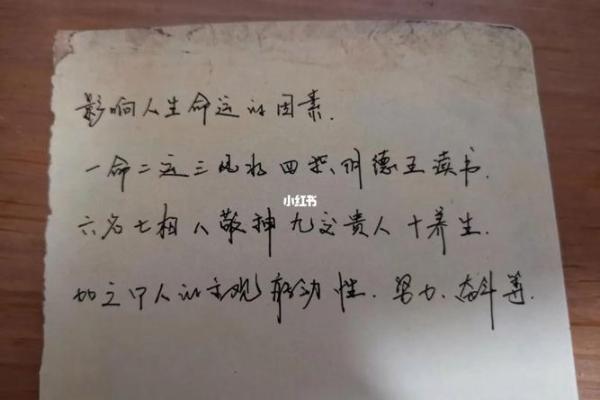 影响人生命运的因素.
一命二运三风水四积阴德五读书.
小红书
六名七相八敬神九交贵人十养生.
加之个人的主观能动性.努力.奋斗等.